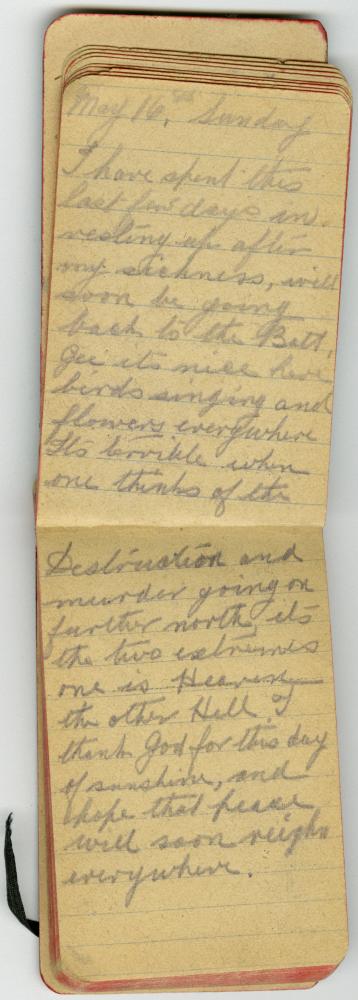 May 16, Sunday
I have spent this
last few days in
resting up after
my sickness, will
soon be going
back to the Batt,
Gee its nice here
birds singing and
flowers everywhere
Its terrible when
one thinks of the
Destruction and
murder going on
further north, its
the two extremes
one is Heaven
the other Hell. I
thank God for this day
of sunshine, and
hope that peace
will soon reighn
everywhere.